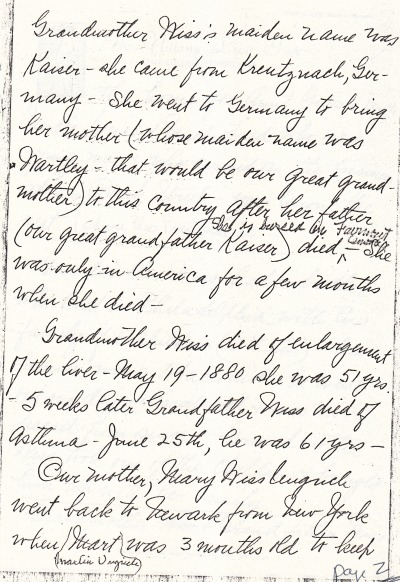 Grandmother Wiss's maiden name was
Kaiser - she came from Kreutznach, Ger-
many - She went to Germany to bring
her mother (whose maiden name was
Wartley - that would be our great grand-
mother) to this country after her father
She is buried in Fairmount
(our great grandfather Kaiser) died, - She
was only in America for a few months
when she died -
Grandmother Wiss died of enlargement
of the liver - May 19 - 1880 she was 51 yrs.
- 5 weeks later Grandfather Wiss died of
Asthma - June 25th, he was 61 yrs -
Our mother, Mary Wiss Ungrich
went back to Newark from New York
when Mart was 3 months old to keep
(Martin Ungrich)
page 2